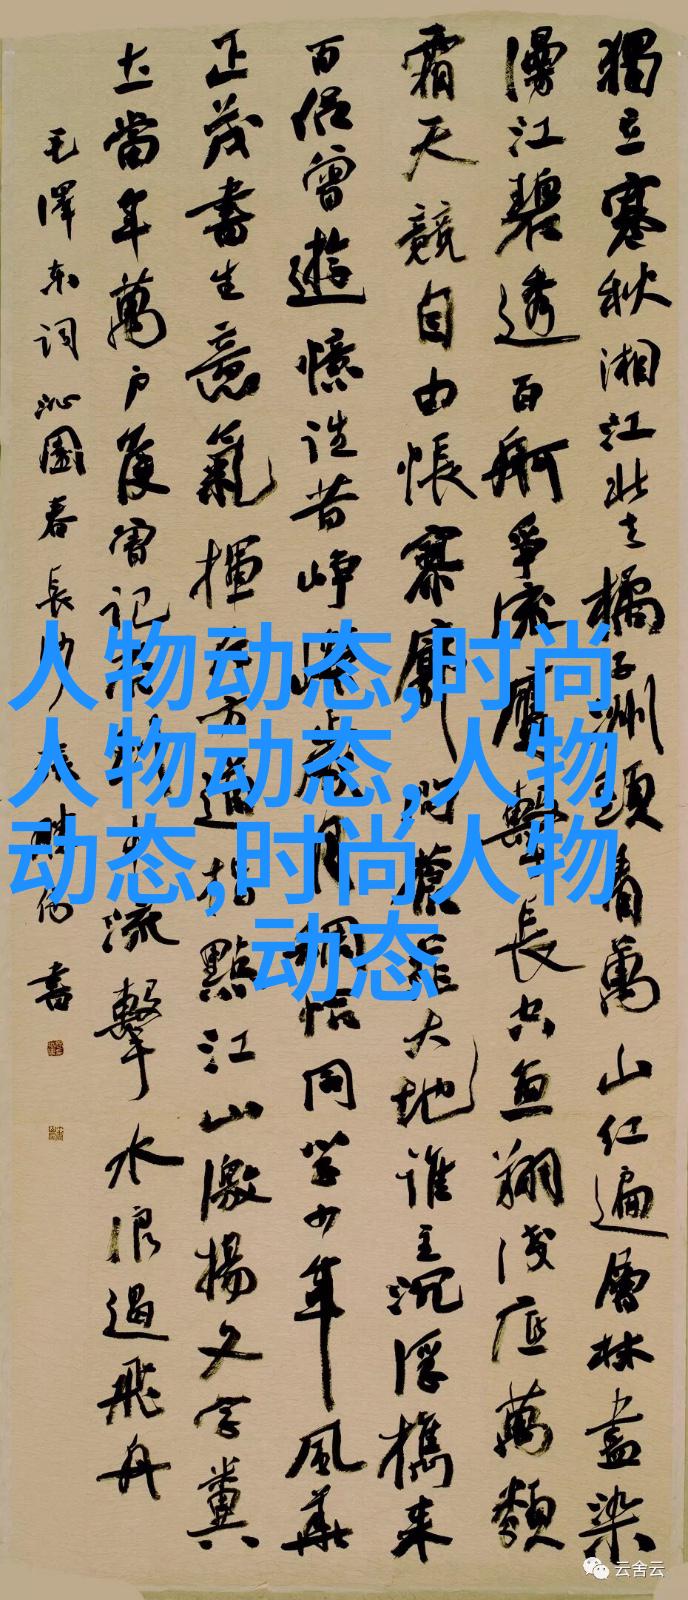 獨立寒秋湘江北去橘子洲頭看萬山紅遍層林盡染
漫江碧透百舸爭流鷹擊長空魚翔淺底萬類
霜天競自由悵寥廓問蒼茫大地誰主沉浮攜來
百侶曾遊憶往昔崢嶸歲月稠恰同學少年風華
正茂書生意氣揮斥方遒指點江山激揚文字糞
土當年萬戶侯曾記否到中流擊水浪遏飛舟
毛澤東詞沁園春長沙 書
人物动态,时尚
人物动态,人物
动态,时尚人物
动态
云舍云